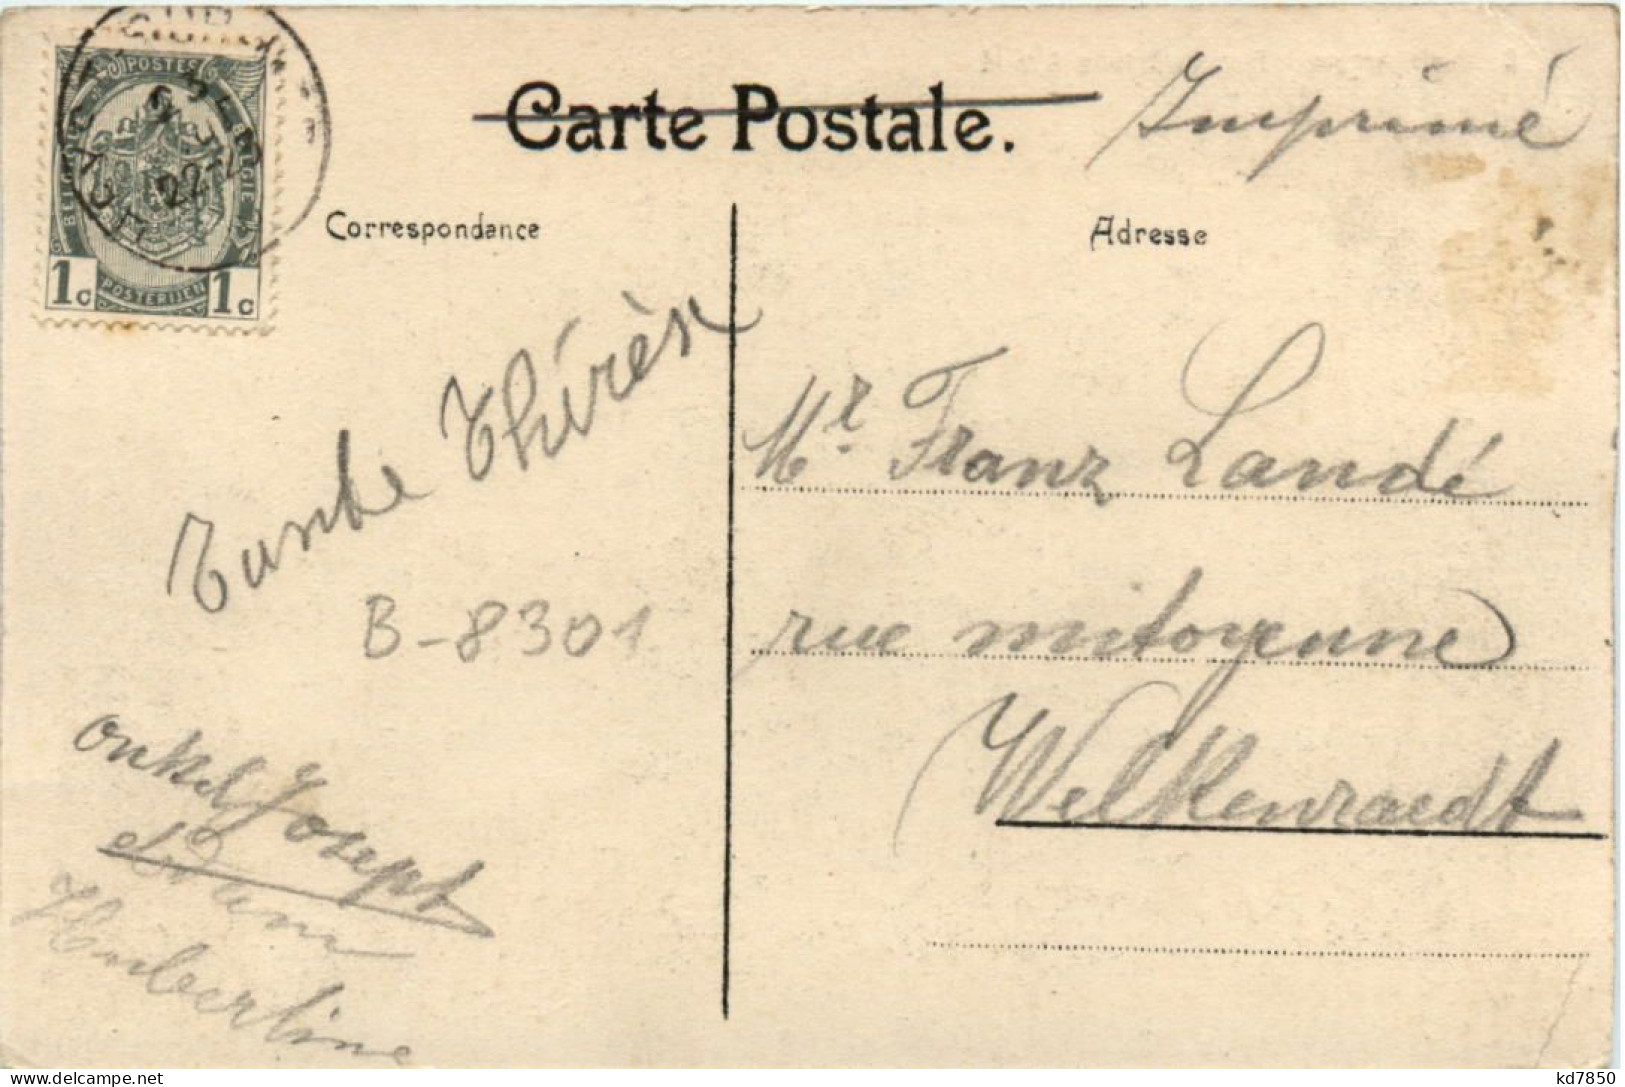 POSTES
BELGIQUE BELGIE
1c POSTERIJEN 1c
22-2
Carte Postale.
Imprimé
Correspondance
Adresse
Tante Thérèse
B-8301
onkel Joseph
Hubertine
Mr. Franz Landé
rue mitoyenne
Welkenraedt
kd7850